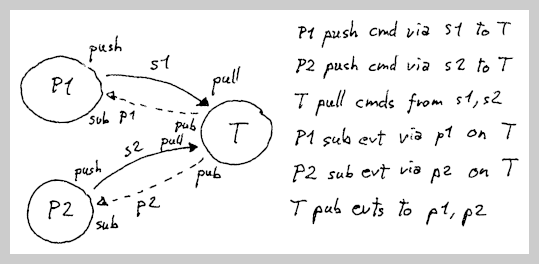 push
s1
pull
P1
sub p1
pub
T
s2
pull
push
pub
P2
p2
sub
P1 push cmd via s1 to T
P2 push cmd via s2 to T
T pull cmds from s1, s2
P1 sub evt via p1 on T
P2 sub evt via p2 on T
T pub evts to p1, p2